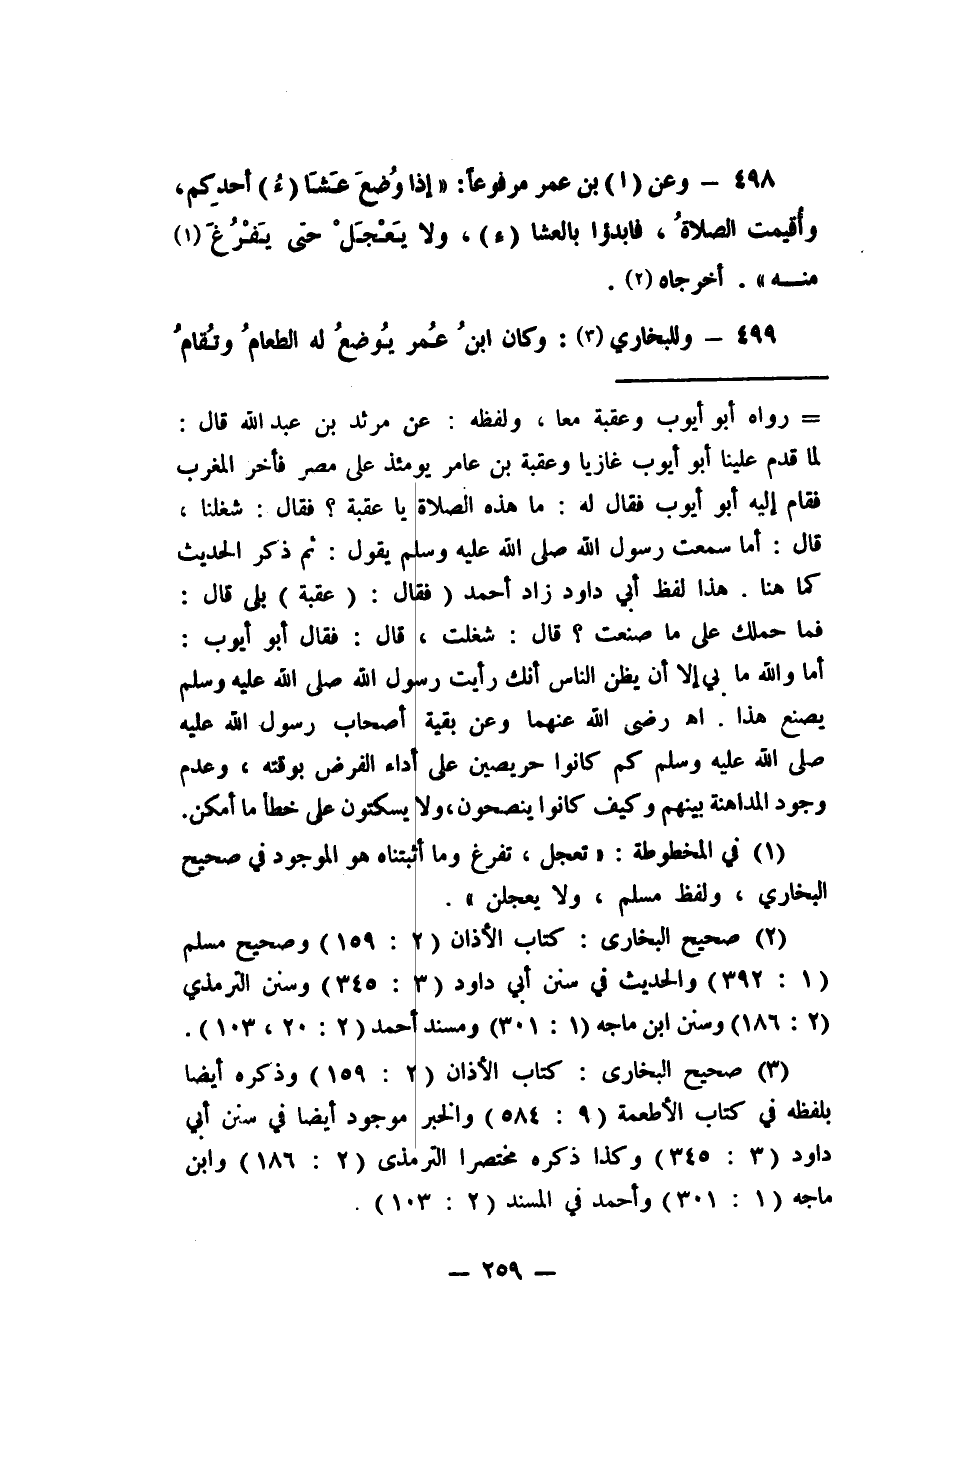 ٤٩٨ – وعن (ا) بن عمر مرفوعاً: « إذا وُضعَ عَشَا (ءُ) أحدِكم،
وأُقيمت الصلاةُ ، فابدؤا بالعشا (ء) ، ولا يَعْجَلْ حتى يَفْرُغَ (١)
منـــه » . أخرجاه (٢) .
٤٩٩ – وللبخاري (٣) : وكان ابنُ عُمر يُوضعُ له الطعامُ وتُقامُ
= رواه أبو أيوب وعقبة معا ، ولفظه : عن مرثد بن عبد الله قال :
لما قدم علينا أبو أيوب غازيا وعقبة بن عامر يومئذ على مصر فأخر المغرب
فقام إليه أبو أيوب فقال له : ما هذه الصلاة يا عقبة ؟ فقال : شغلنا ،
قال : أما سمعت رسول الله صلى الله عليه وسلم يقول : ثم ذكر الحديث
كما هنا . هذا لفظ أبي داود زاد أحمد ( فقال : ( عقبة ) بلى قال :
فما حملك على ما صنعت ؟ قال : شغلت ، قال : فقال أبو أيوب :
أما والله ما بي إلا أن يظن الناس أنك رأيت رسول الله صلى الله عليه وسلم
يصنع هذا . اه رضى الله عنهما وعن بقية أصحاب رسول الله عليه
صلى الله عليه وسلم كم كانوا حريصين على أداء الفرض بوقته ، وعدم
وجود المداهنة بينهم وكيف كانوا ينصحون،ولا يسكتون على خطأ ما أمكن.
(١) في المخطوطة : « تعجل ، تفرغ وما أثبتناه هو الموجود في صحيح
البخاري ، ولفظ مسلم ، ولا يعجلن » .
(٢) صحيح البخارى : كتاب الأذان (٢ : ١٥٩) وصحيح مسلم
(١ : ٣٩٢) والحديث في سنن أبي داود (٣ : ٣٤٥) وسنن الترمذي
(٢ : ١٨٦) وسنن ابن ماجه (١ : ٣٠١) ومسند أحمد (٢ : ٢٠ ، ١٠٣) .
(٣) صحيح البخارى : كتاب الأذان (٢ : ١٥٩) وذكره أيضا
بلفظه في كتاب الأطعمة (٩ : ٥٨٤) والخبر موجود أيضا في سنن أبي
داود (٣ : ٣٤٥) وكذا ذكره مختصرا الترمذى (٢ : ١٨٦) وابن
ماجه (١ : ٣٠١) وأحمد في المسند (٢ : ١٠٣) .
– ٢٥٩ –